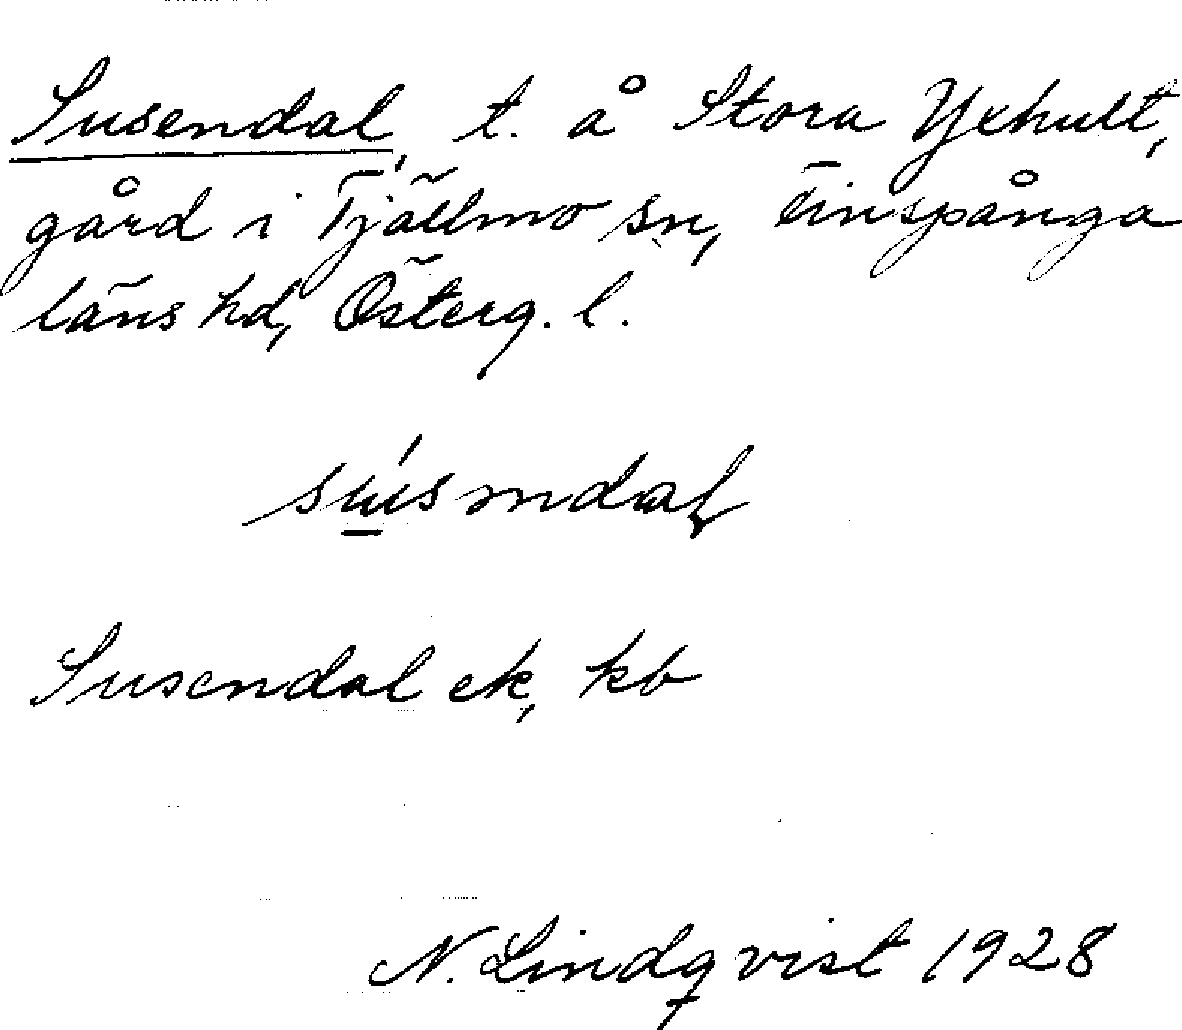 Susendal, t. å Stora Yxhult,
gård i Tjällmo sn, Finspånga
läns hd, Österg. l.
Susendal ek, kb
N. Lindqvist 1928